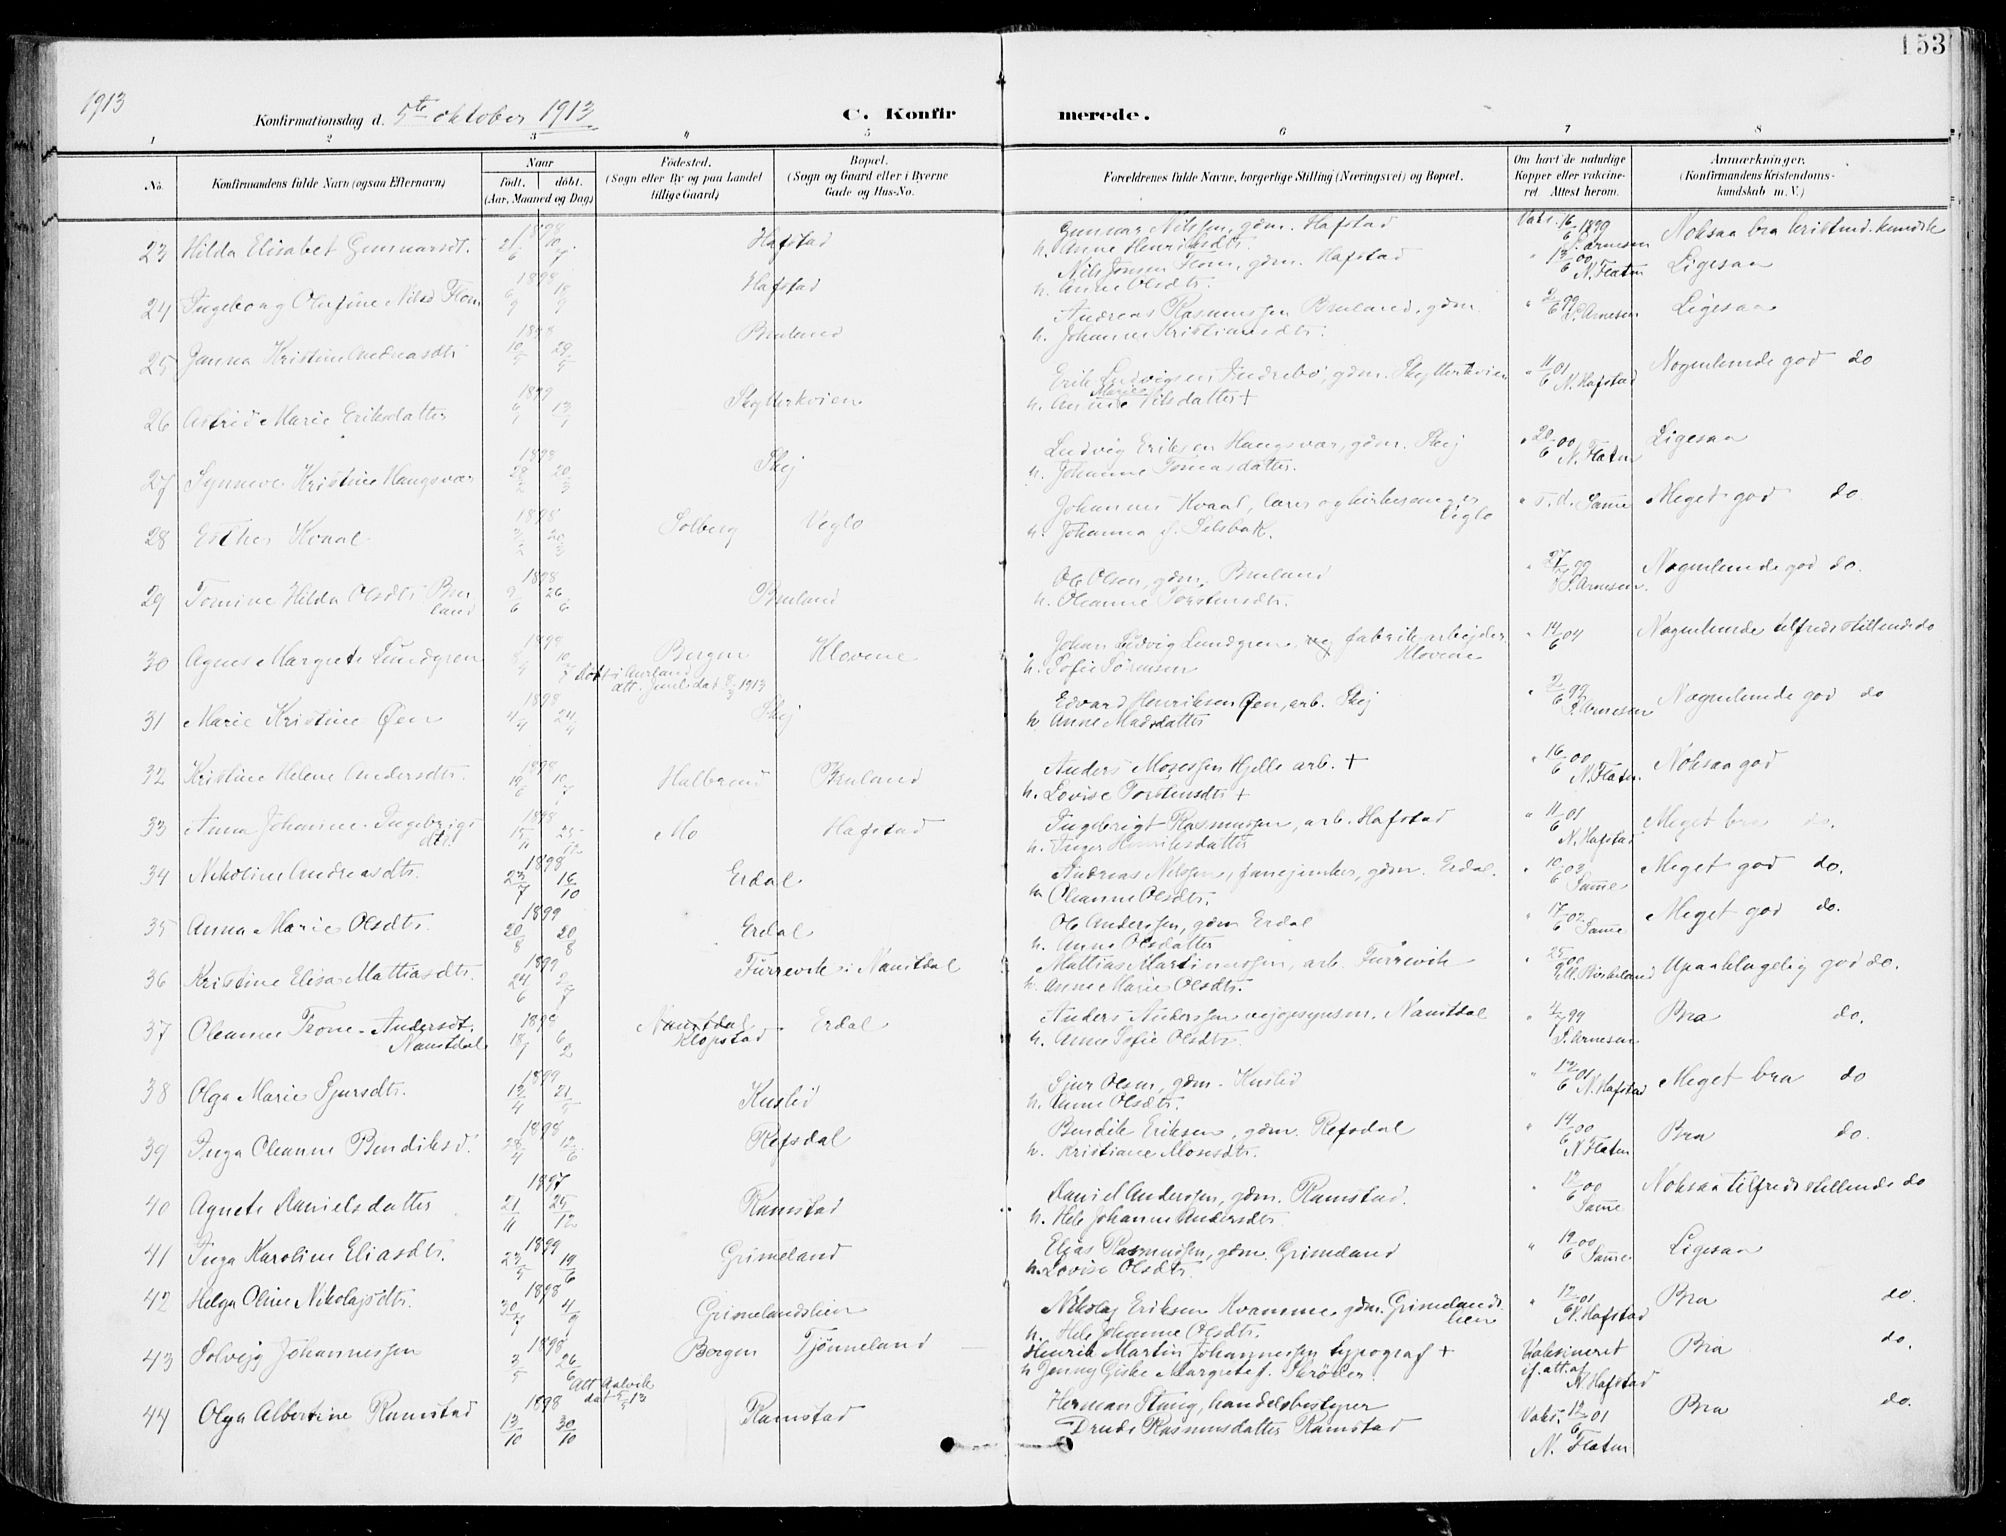 153
1913
Konfirmationsdag d. 5te oktober 1913
C. Konfirmerede.
1 2 3 4 5 6 7 8
No.
Konfirmandens fulde Navn (ogsaa Efternavn)
Naar
født. døbt.
(Aar, Maaned og Dag)
Fødested.
(Sogn eller By og paa Landet
tillige Gaard)
Bopæl.
(Sogn og Gaard eller i Byerne
Gade og Hus-No.
Forældrenes fulde Navne, borgerlige Stilling (Næringsvei) og Bopæl.
Om havt de naturlige
Kopper eller vakcine-
ret Attest herom.
Anmærkninger.
(Konfirmandens Kristendoms-
kundskab m. V.)
23 Hilda Elisabet Gunnarsdt. 1898 Hafstad Gunnar Nilssen, gdm. Hafstad
h. Anne Henriksdtr. Vaks. 16/6 1899 S. Arnesen Noksaa bra kristend.kundsk
24 Ingeborg Olufine Nilsd Flom 1898 6/9 18/9 Hafstad Nils Jonsen Flom, gdm. Hafstad
h. Anne Olsdtr. " 13/6 00 N. Flaten Ligesaa
25 Janna Kristine Andreasdtr 1898 10/5 29/5 Bruland Andreas Rasmussen Bruland, gdm.
h. Johanne Kristiansdtr. " 2/6 99 S. Arnesen Ligesaa
26 Astrid Marie Eriksdatter 1899 Skytterkvien Erik Ludvigsen Indrebø, gdm. Skytterkvien
h. Anne Marie Nilsdatter + " 11/6 01 N. Hafstad Nogenlunde god do
27 Synneve Kristine Hangsvar 1898 28/2 20/3 Skej Ludvig Eriksen Hangsvar, gdm. Skej
h. Johanne Tomasdatter. " 20/6 00 N. Flaten Ligesaa
28 Esther Kvaal 1898 3/2 20/3 Solberg Veglo Johannes Kvaal, lærer og kirkesanger
Veglo
h. Johanna f. Selsbak. " s. d. Samme Meget god do.
29 Tomine Hilda Olsdtr Bru
land 1898 9/6 26/6 Bruland Ole Olsen, gdm. Bruland
h. Oleanne Torstensdtr. " 27/6 99 S. Arnesen. Nogenlunde god do.
30 Agnes Margrete Lundgren 1898 Bergen Klovene Johan Ludvig Lundgren, fabrikarbejder
Klovene
h. Sofie Sørensen " 14/6 04 Nogenlunde tilfredsstillende do
Døbt i Aurland
att. 1913
31 Marie Kristine Øen 1898 4/4 24/4 Skej Edvard Henriksen Øen, arb. Skej
h. Anne Madsdatter " 2/6 99 S. Arnesen Nogenlunde god do
32 Kristine Helene Andersdtr. 1898 19/6 10/7 Halbrend Bruland Anders Mosessen Hjelle arb. +
h. Lovise Torstensdtr + " 16/6 00 N. Flaten. Noksaa god
33 Anna Johanne Ingebrigts
dtr. 1898 15/11 25/12 Mo Hafstad Ingebrigt Rasmussen, arb. Hafstad
h. Inger Henriksdatter " 11/6 01 N. Hafstad Meget bra do.
34 Nikoline Andreasdtr. 1898 23/7 16/10 Erdal Andreas Nilssen, fanejunker, gdm. Erdal.
h. Oleanne Olsdtr. " 10/6 03 Samme Meget god do.
35 Anna Marie Olsdtr. 1899 20/8 20/8 Erdal Ole Anderssen, gdm Erdal
h. Anne Olsdatter " 17/6 02 Samme Meget god do.
36 Kristine Elisa Mattiasdtr. 1899 24/6 2/7 Furrevik i Naustdal Mattias Martinussen, arb. Furrevik
h. Anne Marie Olsdtr. " 25/ 00 Upaaklagelig god do.
37 Oleanne Trone Andersdt.
Naustdal 1899 18/1 6/2 Naustdal
Klopstad Erdal Anders Anderssen vejopsynsm. Naustdal
h. Anne Sofie Olsdtr. " 4/7 99 S. Arnesen Bra do.
38 Olga Marie Sjursdtr. 1899 12/4 21/5 Kuslid Sjur Olsen, gdm. Kuslid
h. Anne Olsdtr. " 12/6 01 N. Hafstad Meget bra do
39 Inga Oleanne Bendiksd. 1898 28/4 12/6 Refsdal Bendik Eriksen, gdm. Refsdal
h. Kristiane Mosesdtr. " 14/6 00 N Flaten Bra do.
40 Agnete Danielsdatter 1897 21/11 25/12 Ramstad Daniel Anderssen, gdm. Ramstad.
h. Hele Johanne Andersdtr. " 12/6 00 Samme Noksaa tilfredsstillende do
41 Inga Karoline Eliasdtr. 1899 23/5 19/6 Grimeland Elias Rasmussen, gdm. Grimeland
h. Lovise Olsdtr. " 19/6 00 Samme Ligesaa
42 Helga Oline Nikolajsdtr. 1898 30/7 4/9 Grimelandslien Nikolaj Eriksen Kvamme gdm. Grimelands
lien
h. Hele Johanne Olsdtr. " 12/6 01 N. Hafstad Bra do.
43 Solvejg Johannessen 1898 3/5 26/6 Bergen Tjønneland Henrik Martin Johannessen typograf +
h Jenny Giske Margrete f. Skrøder. Vaksineret
if. att. af
N. Hafstad Bra do.
Att Aalvik
dat 5/5 13
44 Olga Albertine Ramstad 1898 13/10 30/10 Ramstad Herman Stang, handelsbestyrer
Drude Rasmusdatter Ramstad Vaks. 12/6 01
N. Flaten Bra do.